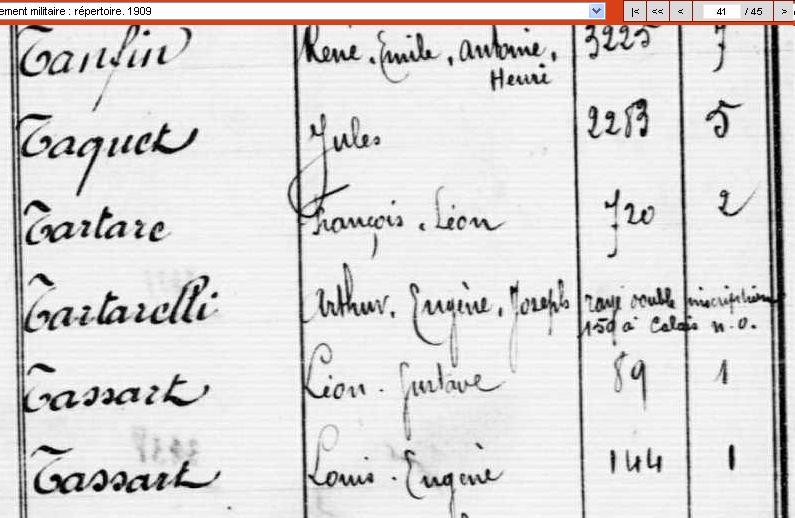 ement militaire : répertoire. 1909 |< << < 41 / 45 >
Tanfin René, Emile, Antoine, 3225 7
Henri
Taquet Jules 2283 5
Tartare François, Léon 720 2
Tartarelli Arthur, Eugène, Joseph rayé double inscription
159 à Calais n.o.
Tassart Léon - Gustave 89 1
Tassart Louis - Eugène 144 1